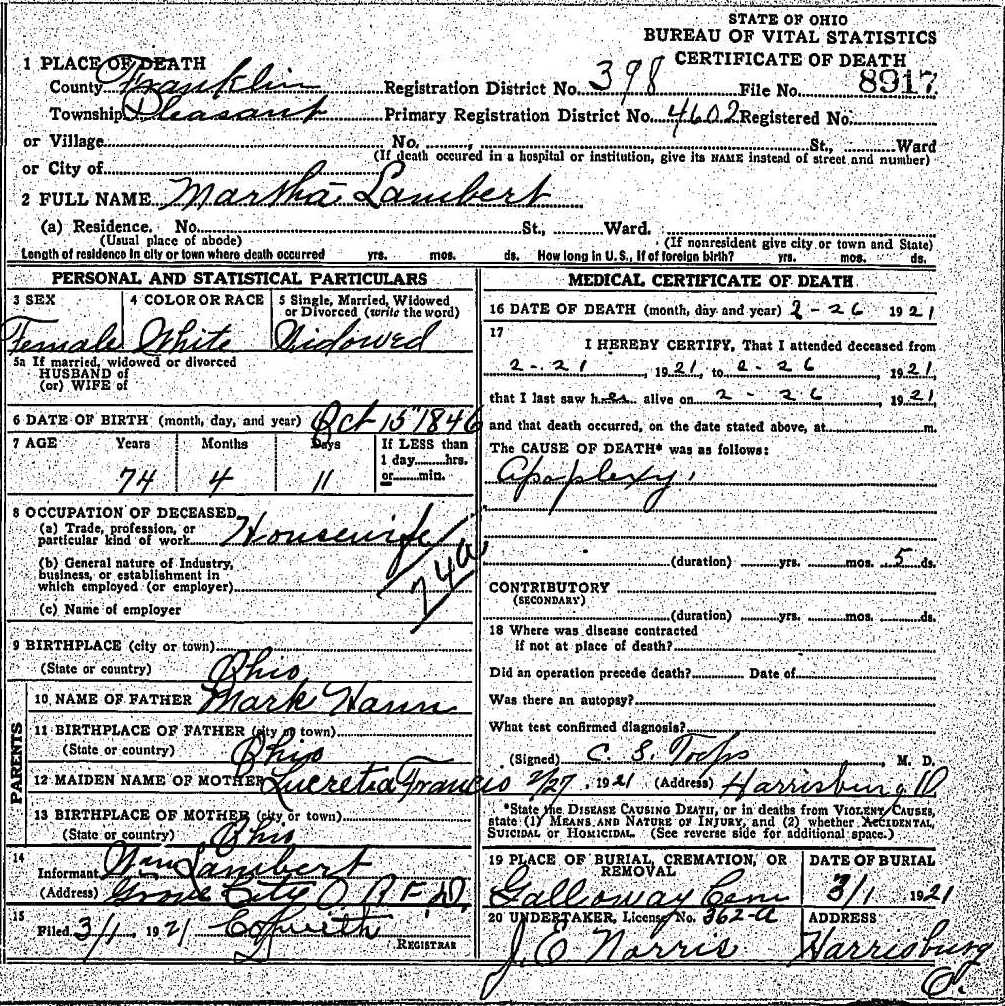 STATE OF OHIO
BUREAU OF VITAL STATISTICS
CERTIFICATE OF DEATH
1 PLACE OF DEATH
County Franklin Registration District No. 398 File No. 8917
Township Pleasant Primary Registration District No. 4602 Registered No.
or Village No. , St., Ward
(If death occured in a hospital or institution, give its NAME instead of street and number)
or City of
2 FULL NAME Martha Lambert
(a) Residence. No. St., Ward.
(Usual place of abode) (If nonresident give city or town and State)
Length of residence in city or town where death occurred yrs. mos. ds. How long in U.S., if of foreign birth? yrs. mos. ds.
PERSONAL AND STATISTICAL PARTICULARS
3 SEX 4 COLOR OR RACE 5 Single, Married, Widowed
or Divorced (write the word)
Female White Widowed
5a If married, widowed or divorced
HUSBAND of
(or) WIFE of
6 DATE OF BIRTH (month, day, and year) Oct 15" 1846
7 AGE Years Months Days If LESS than
1 day hrs.
74 4 11 or min.
8 OCCUPATION OF DECEASED
(a) Trade, profession, or
particular kind of work Housewife
(b) General nature of Industry,
business, or establishment in
which employed (or employer)
74a
(c) Name of employer
9 BIRTHPLACE (city or town)
(State or country) Ohio
PARENTS
10 NAME OF FATHER Mark Hann
11 BIRTHPLACE OF FATHER (city or town)
(State or country) Ohio
12 MAIDEN NAME OF MOTHER Lucretia Francis
13 BIRTHPLACE OF MOTHER (city or town)
(State or country) Ohio
14
Informant Wm Lambert
(Address) Grove City O. R F D.
15
Filed 3/1 1921
REGISTRAR
MEDICAL CERTIFICATE OF DEATH
16 DATE OF DEATH (month, day and year) 2-26 1921
17
I HEREBY CERTIFY, That I attended deceased from
2-21, 1921, to 2-26, 1921,
that I last saw her alive on 2-26, 1921
and that death occurred, on the date stated above, at m.
The CAUSE OF DEATH* was as follows:
Apoplexy
(duration) yrs. mos. 5 ds.
CONTRIBUTORY
(SECONDARY)
(duration) yrs. mos. ds.
18 Where was disease contracted
if not at place of death?
Did an operation precede death? Date of
Was there an autopsy?
What test confirmed diagnosis?
(Signed) C. S. Toops M. D.
2/27, 1921 (Address) Harrisburg O.
*State the DISEASE CAUSING DEATH, or in deaths from VIOLENT CAUSES,
state (1) MEANS AND NATURE OF INJURY, and (2) whether ACCIDENTAL,
SUICIDAL or HOMICIDAL. (See reverse side for additional space.)
19 PLACE OF BURIAL, CREMATION, OR REMOVAL DATE OF BURIAL
Galloway Cem 3/1 1921
20 UNDERTAKER, License No. 362-a ADDRESS
J. E. Norris Harrisburg
O.